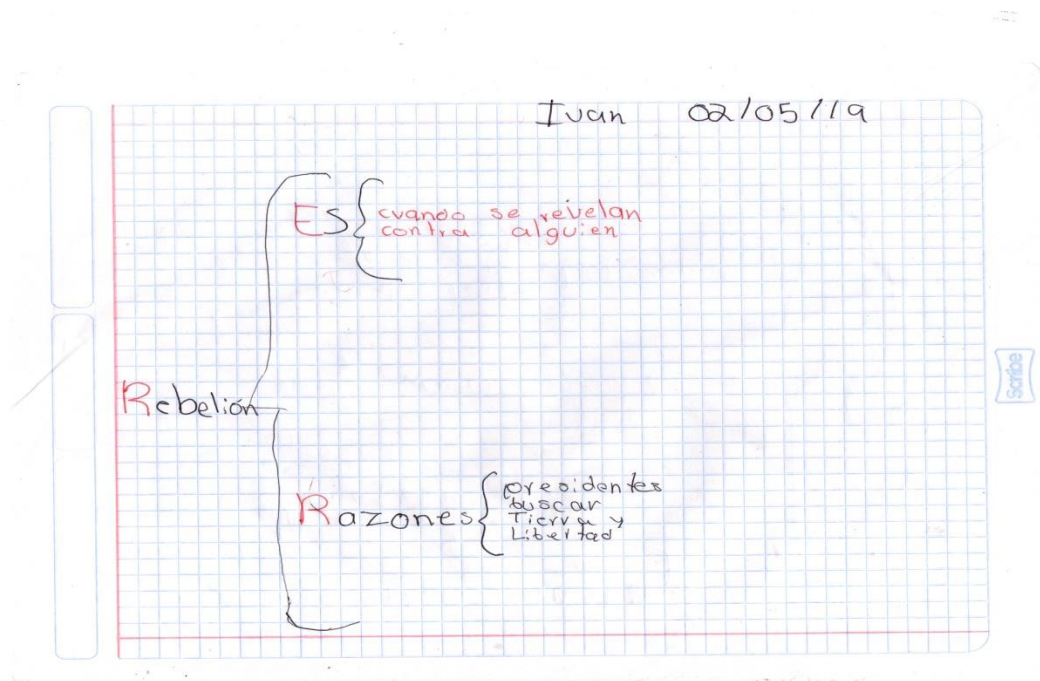 Ivan 02/05/19
Es
cuando se revelan
contra alguien
Rebelión
Razones
presidentes
buscar
Tierra y
Libertad
Scribe